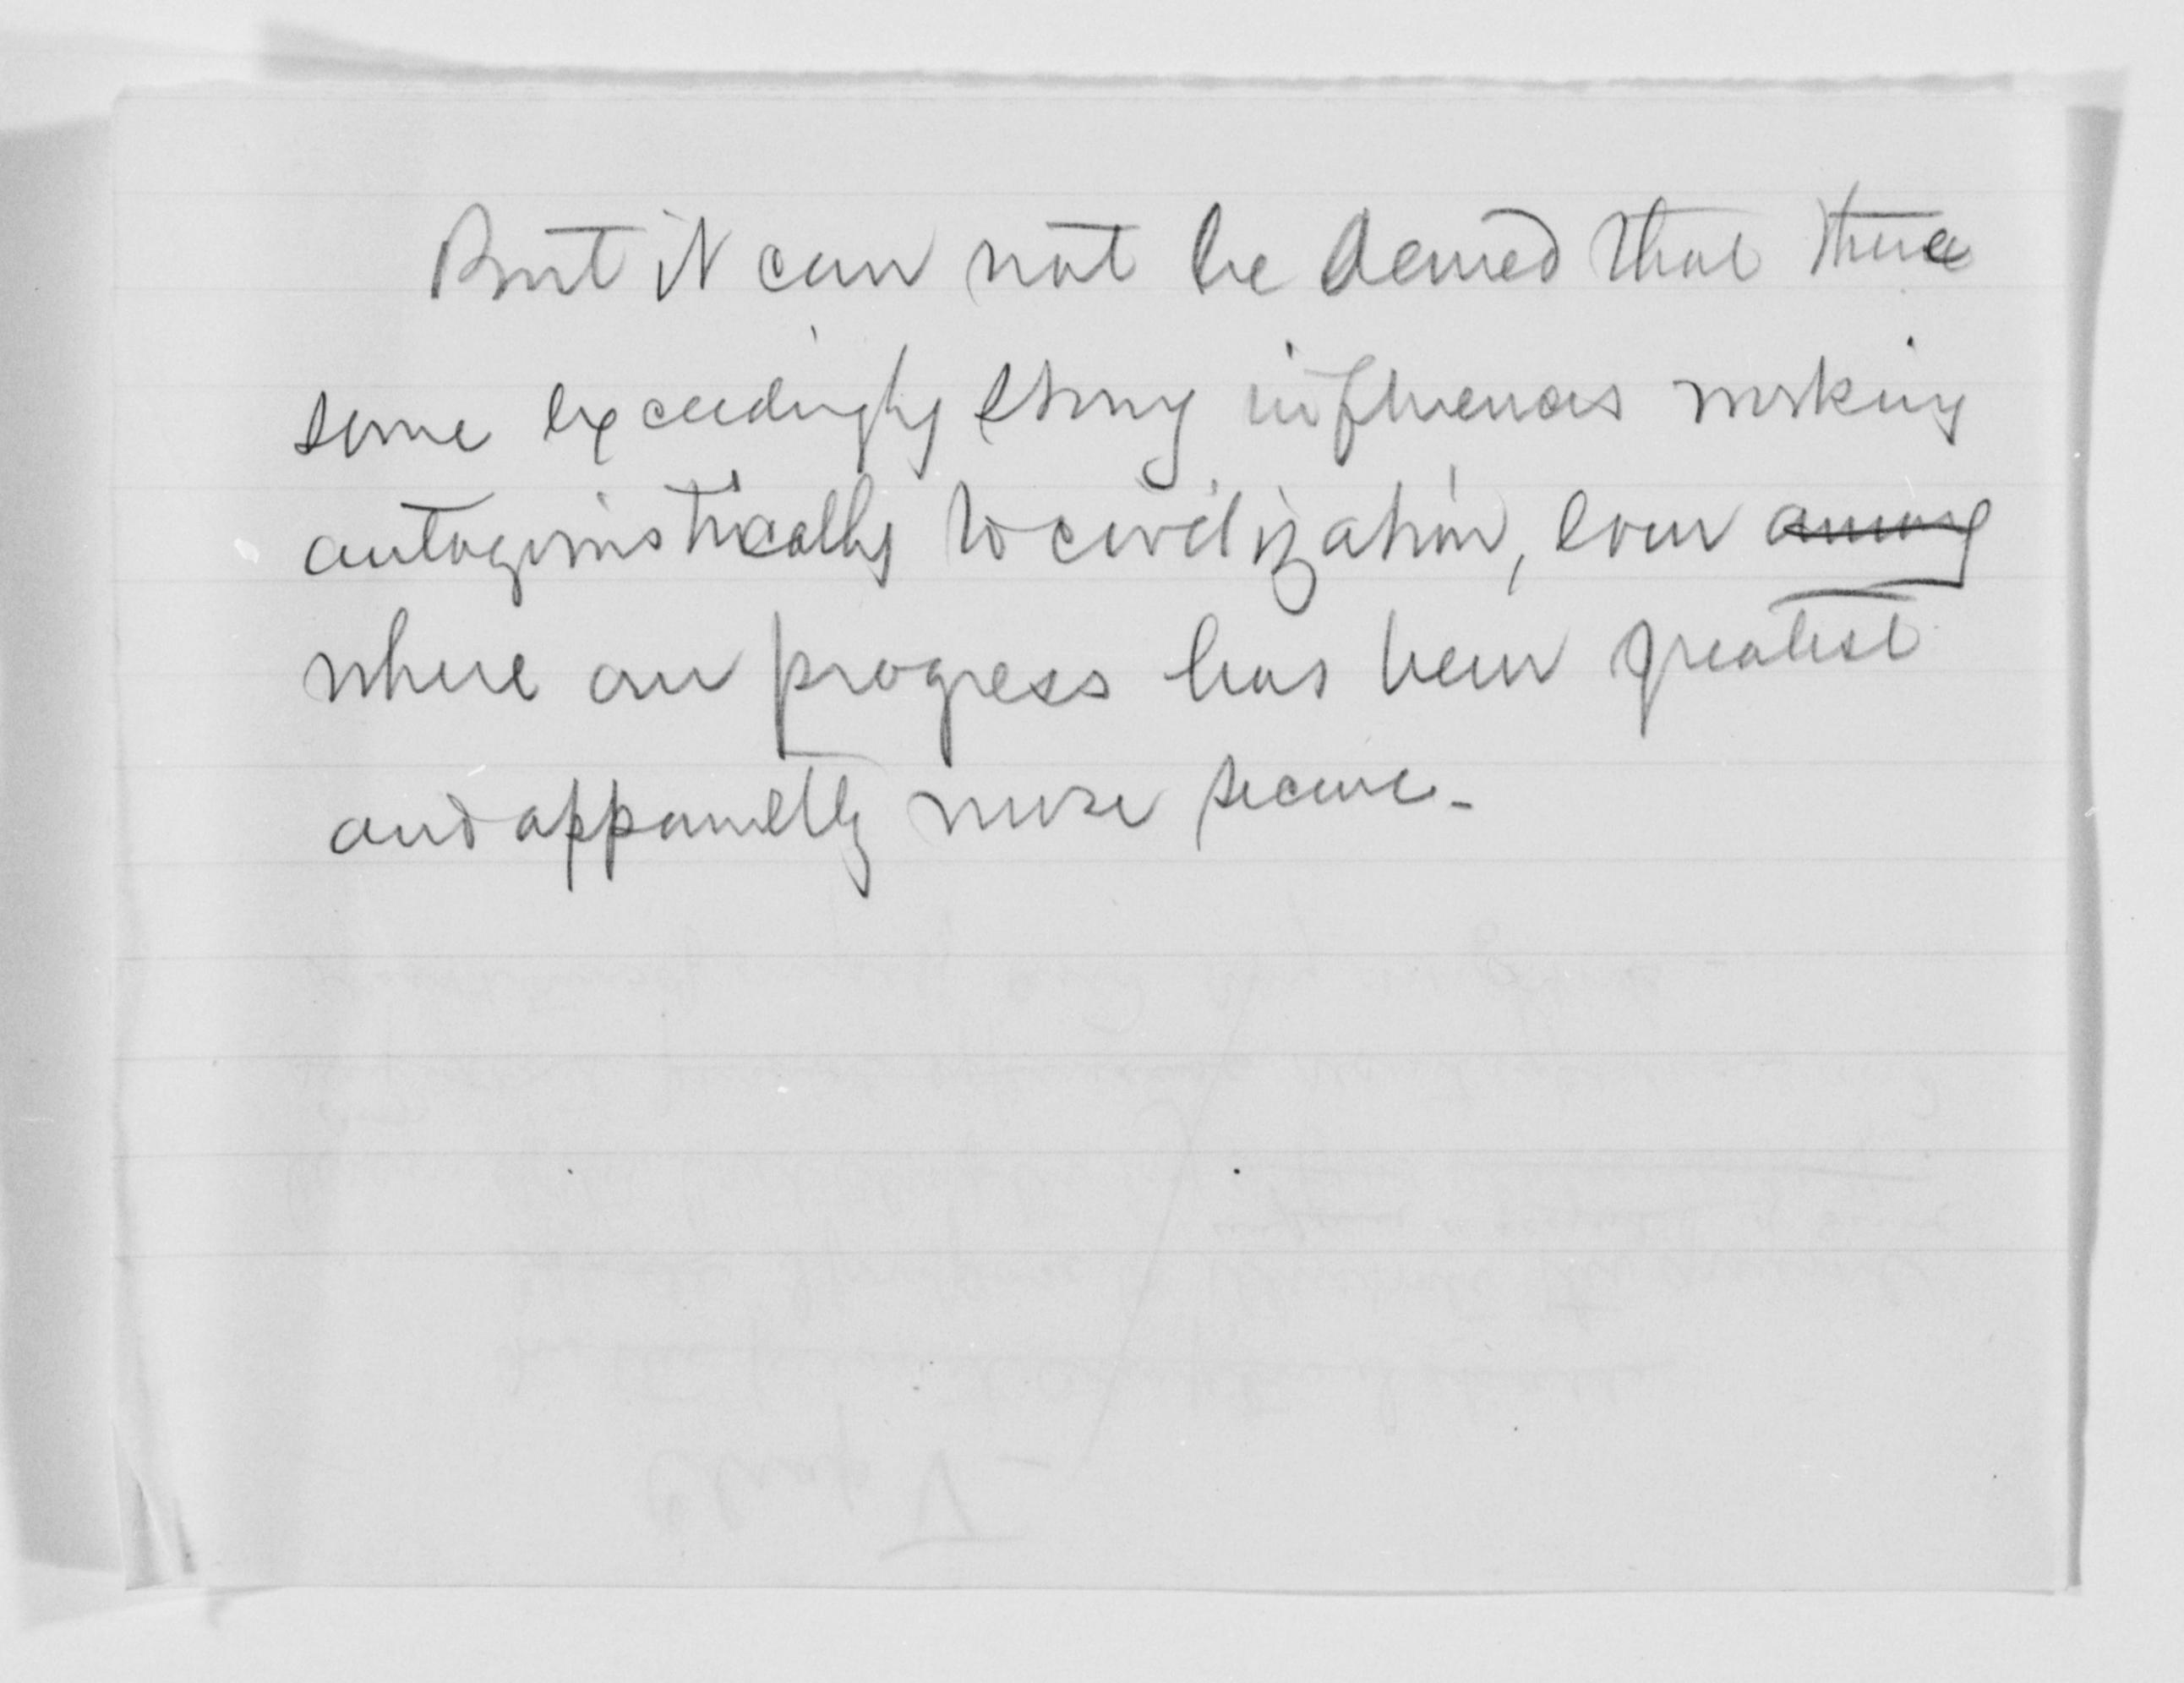 But it can not be denied that there
some exceedingly strong influences working
antagonistically to civilization, even among
where our progress has been greatest
and apparently more secure.